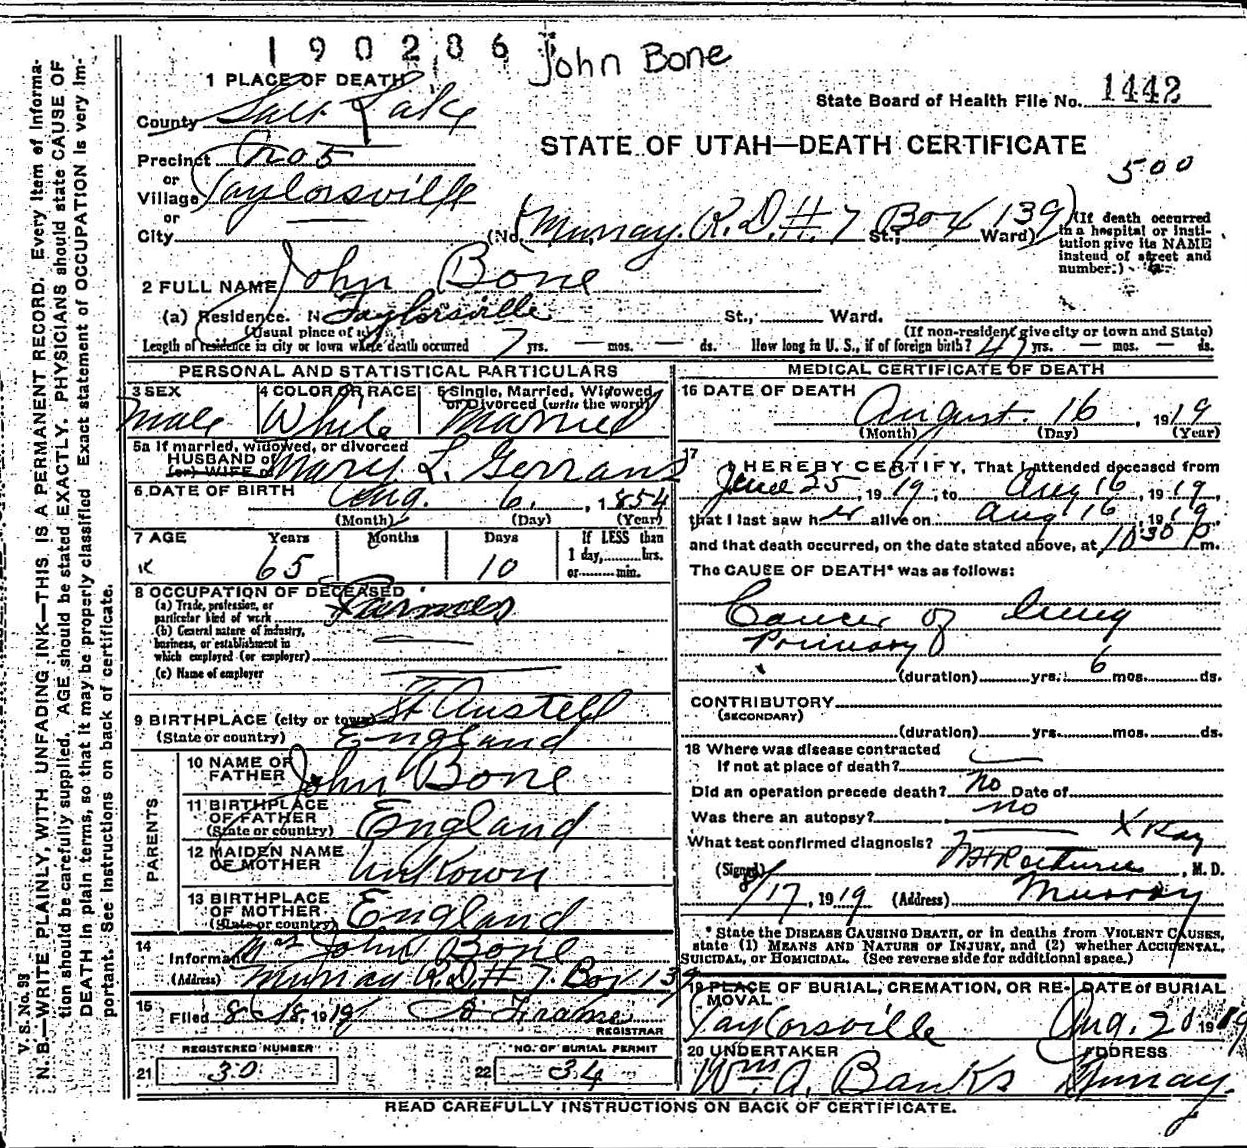 190286 John Bone
1 PLACE OF DEATH
State Board of Health File No. 1442
County Salt Lake
STATE OF UTAH—DEATH CERTIFICATE
Precinct No 5
500
or
Village Taylorsville
or
City (No. Murray. R.D.#. 7 St.; Box 139 Ward)
(If death occurred in a hospital or insti-
tution give its NAME
instead of street and
number.)
2 FULL NAME John Bone
(a) Residence. N Taylorsville St., Ward.
(Usual place of (If non-resident give city or town and State)
Length of residence in city or town where death occurred 7 yrs. — mos. — ds. How long in U. S., if of foreign birth? 47 yrs. — mos. — ds.
PERSONAL AND STATISTICAL PARTICULARS
3 SEX
Male
4 COLOR OR RACE
White
5 Single, Married, Widowed
or Divorced (write the word)
Married
5a If married, widowed, or divorced
HUSBAND of
(or) WIFE of Mary L. Gerrans
6 DATE OF BIRTH Aug. 6, 1854
(Month) (Day) (Year)
7 AGE Years Months Days If LESS than
1 day, hrs.
or min.
65 10
8 OCCUPATION OF DECEASED
(a) Trade, profession, or
particular kind of work Farmer
(b) General nature of industry,
business, or establishment in
which employed (or employer)
(c) Name of employer
9 BIRTHPLACE (city or town) St Austell
(State or country) England
PARENTS
10 NAME OF
FATHER John Bone
11 BIRTHPLACE
OF FATHER
(State or country) England
12 MAIDEN NAME
OF MOTHER Unkown
13 BIRTHPLACE
OF MOTHER
(State or country) England
14
Informant Mrs John Bone
(Address) Murray R.D.# 7. Box 139
15
Filed 8/18, 1919
REGISTRAR
REGISTERED NUMBER
21 30
NO. OF BURIAL PERMIT
22 34
MEDICAL CERTIFICATE OF DEATH
16 DATE OF DEATH
August 16, 1919
(Month) (Day) (Year)
17 I HEREBY CERTIFY, That I attended deceased from
June 25, 1919, to Aug 16, 1919,
that I last saw her alive on Aug 16, 1919
and that death occurred, on the date stated above, at 10:30 P m.
The CAUSE OF DEATH* was as follows:
Cancer of lung
Primary
(duration) yrs. 6 mos. ds.
CONTRIBUTORY
(SECONDARY)
(duration) yrs. mos. ds.
18 Where was disease contracted
If not at place of death?
Did an operation precede death? no Date of
Was there an autopsy? no
What test confirmed diagnosis? X Ray
(Signed) , M. D.
8/17, 1919 (Address) Murray
* State the DISEASE CAUSING DEATH, or in deaths from VIOLENT CAUSES,
state (1) MEANS AND NATURE OF INJURY, and (2) whether ACCIDENTAL,
SUICIDAL, or HOMICIDAL. (See reverse side for additional space.)
19 PLACE OF BURIAL, CREMATION, OR RE-
MOVAL
Taylorsville
DATE of BURIAL
Aug. 20 1919
20 UNDERTAKER
Wm A. Banks
ADDRESS
Murray
READ CAREFULLY INSTRUCTIONS ON BACK OF CERTIFICATE.
V. S. No. 93
N. B.—WRITE PLAINLY, WITH UNFADING INK—THIS IS A PERMANENT RECORD. Every item of informa-
tion should be carefully supplied. AGE should be stated EXACTLY. PHYSICIANS should state CAUSE OF
DEATH in plain terms, so that it may be properly classified. Exact statement of OCCUPATION is very im-
portant. See instructions on back of certificate.